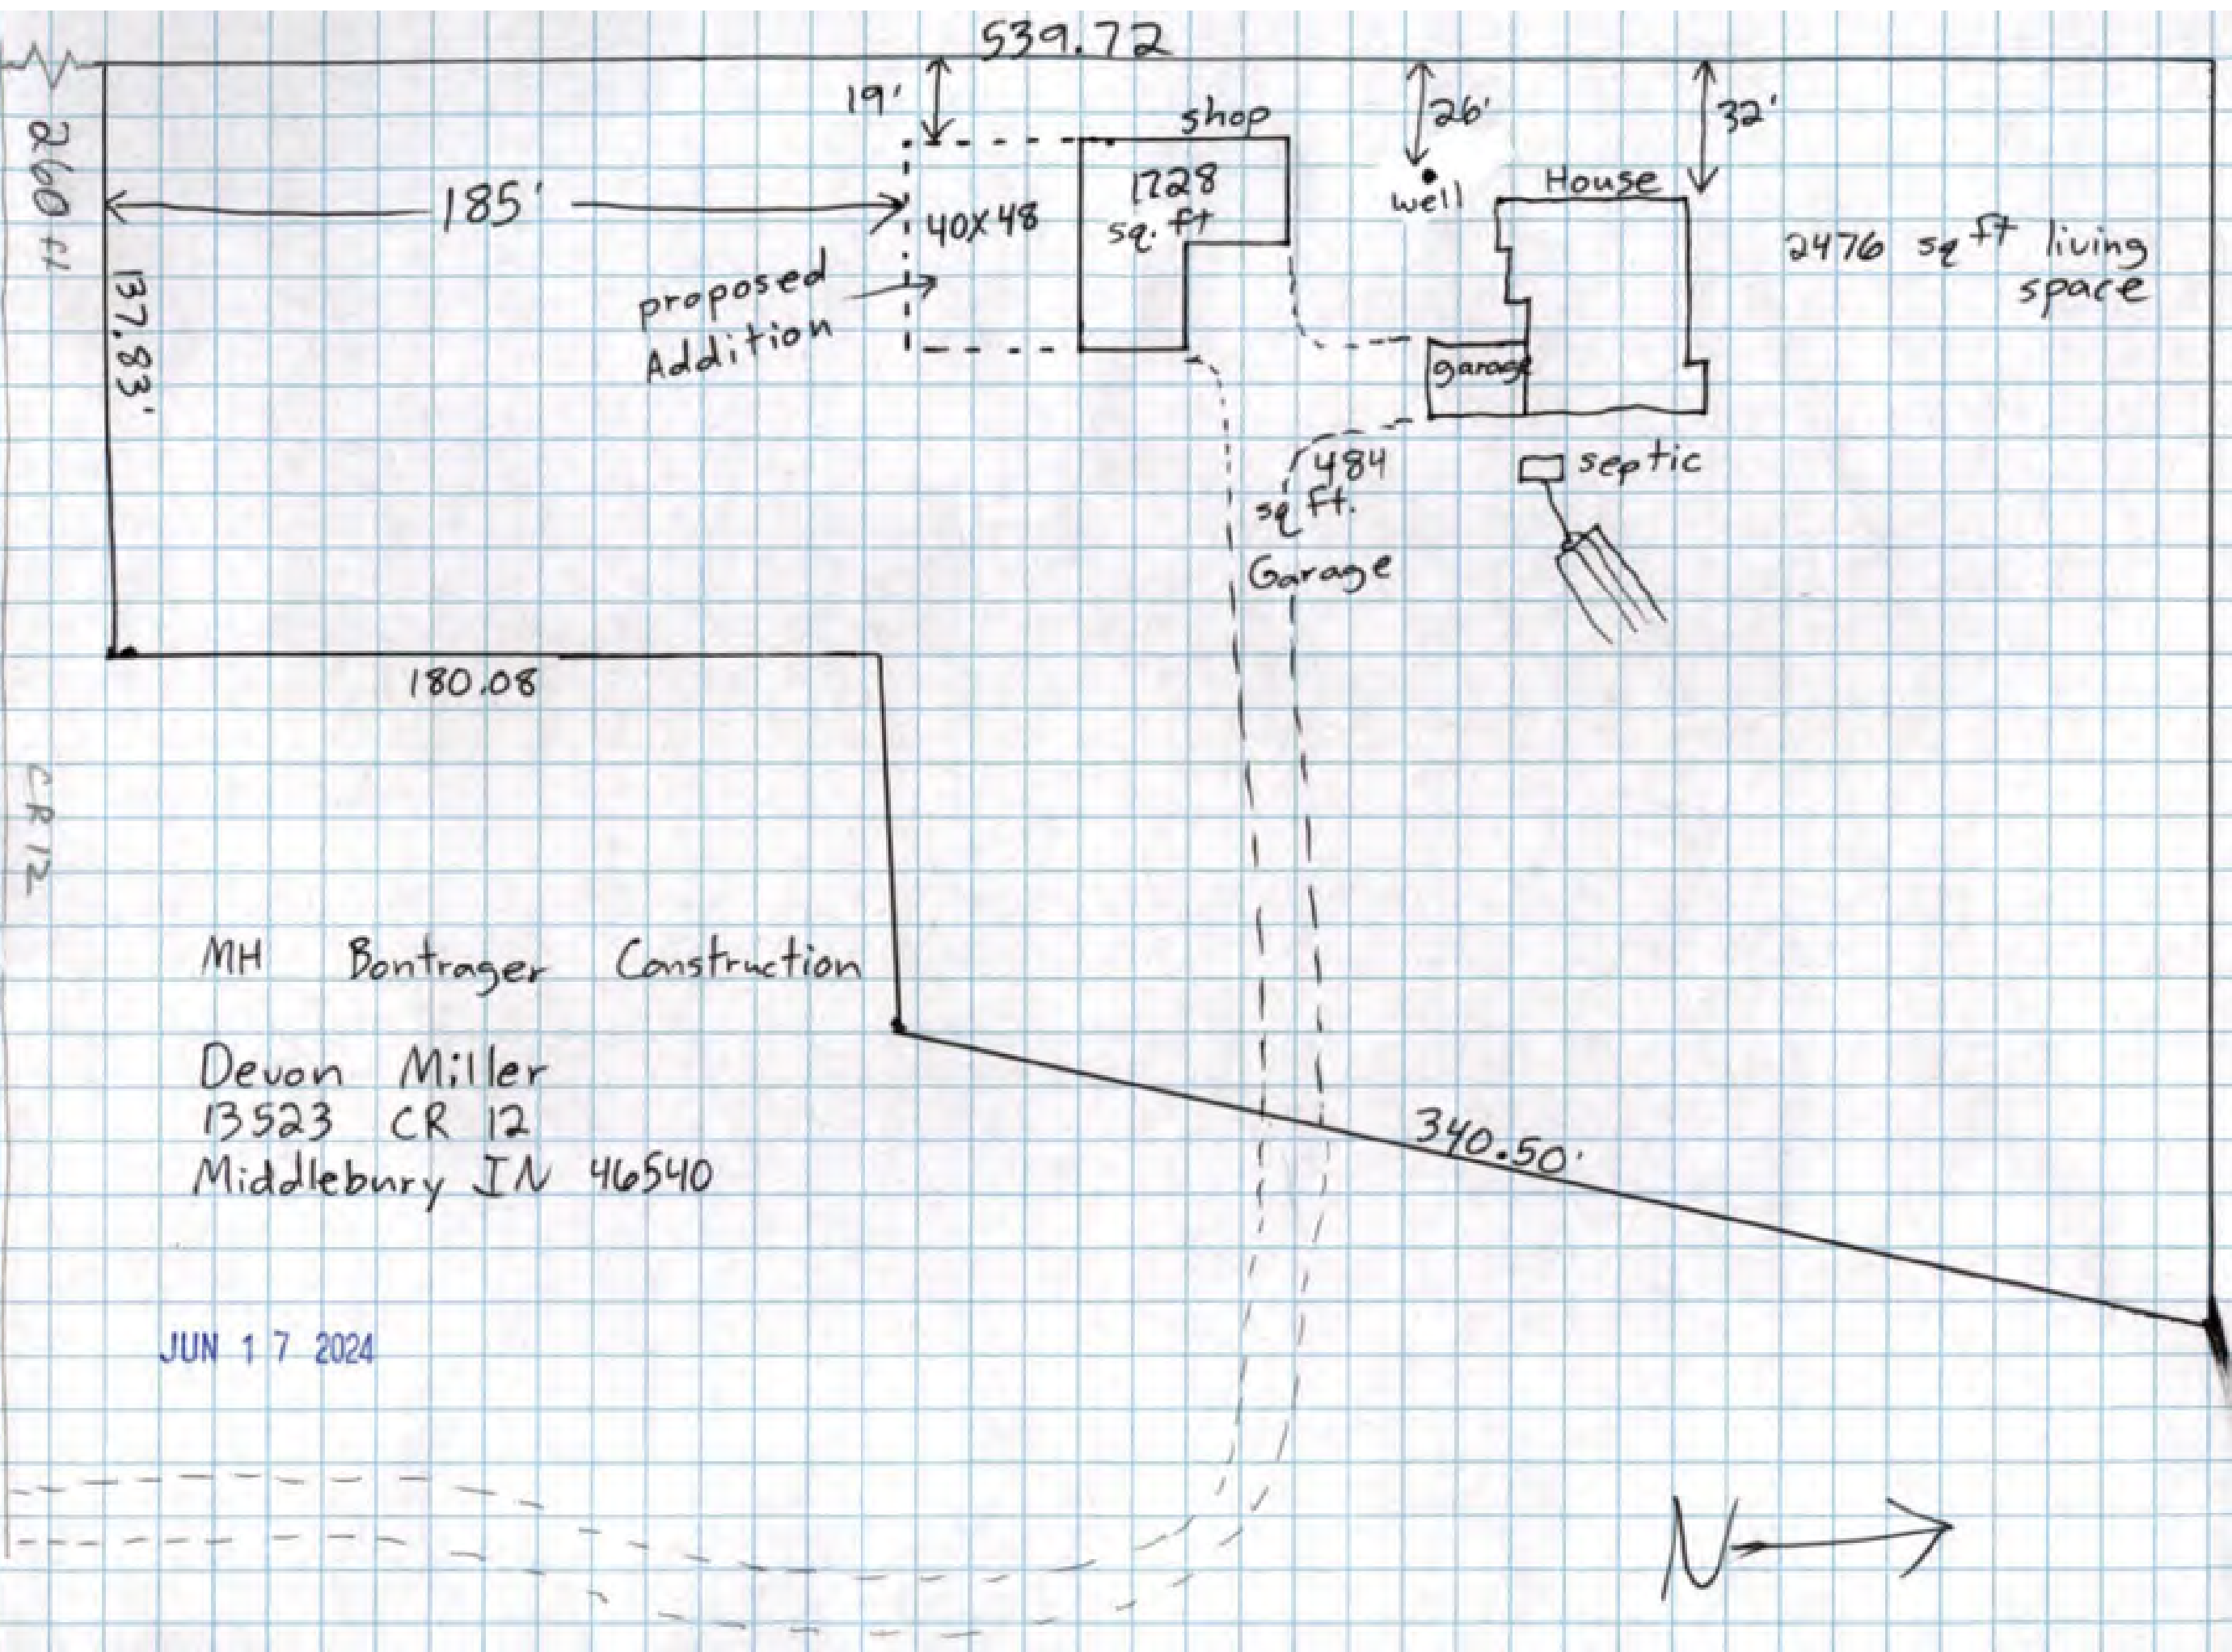 539.72
19'
shop
26'
32'
2600 ft
185'
1728
sq. ft
well
House
40X48
2476 sq ft living
space
proposed
Addition
137.83'
garage
484
sq ft.
Garage
septic
180.08
CR 12
MH Bontrager Construction
Devon Miller
13523 CR 12
Middlebury IN 46540
340.50'
JUN 17 2024
N